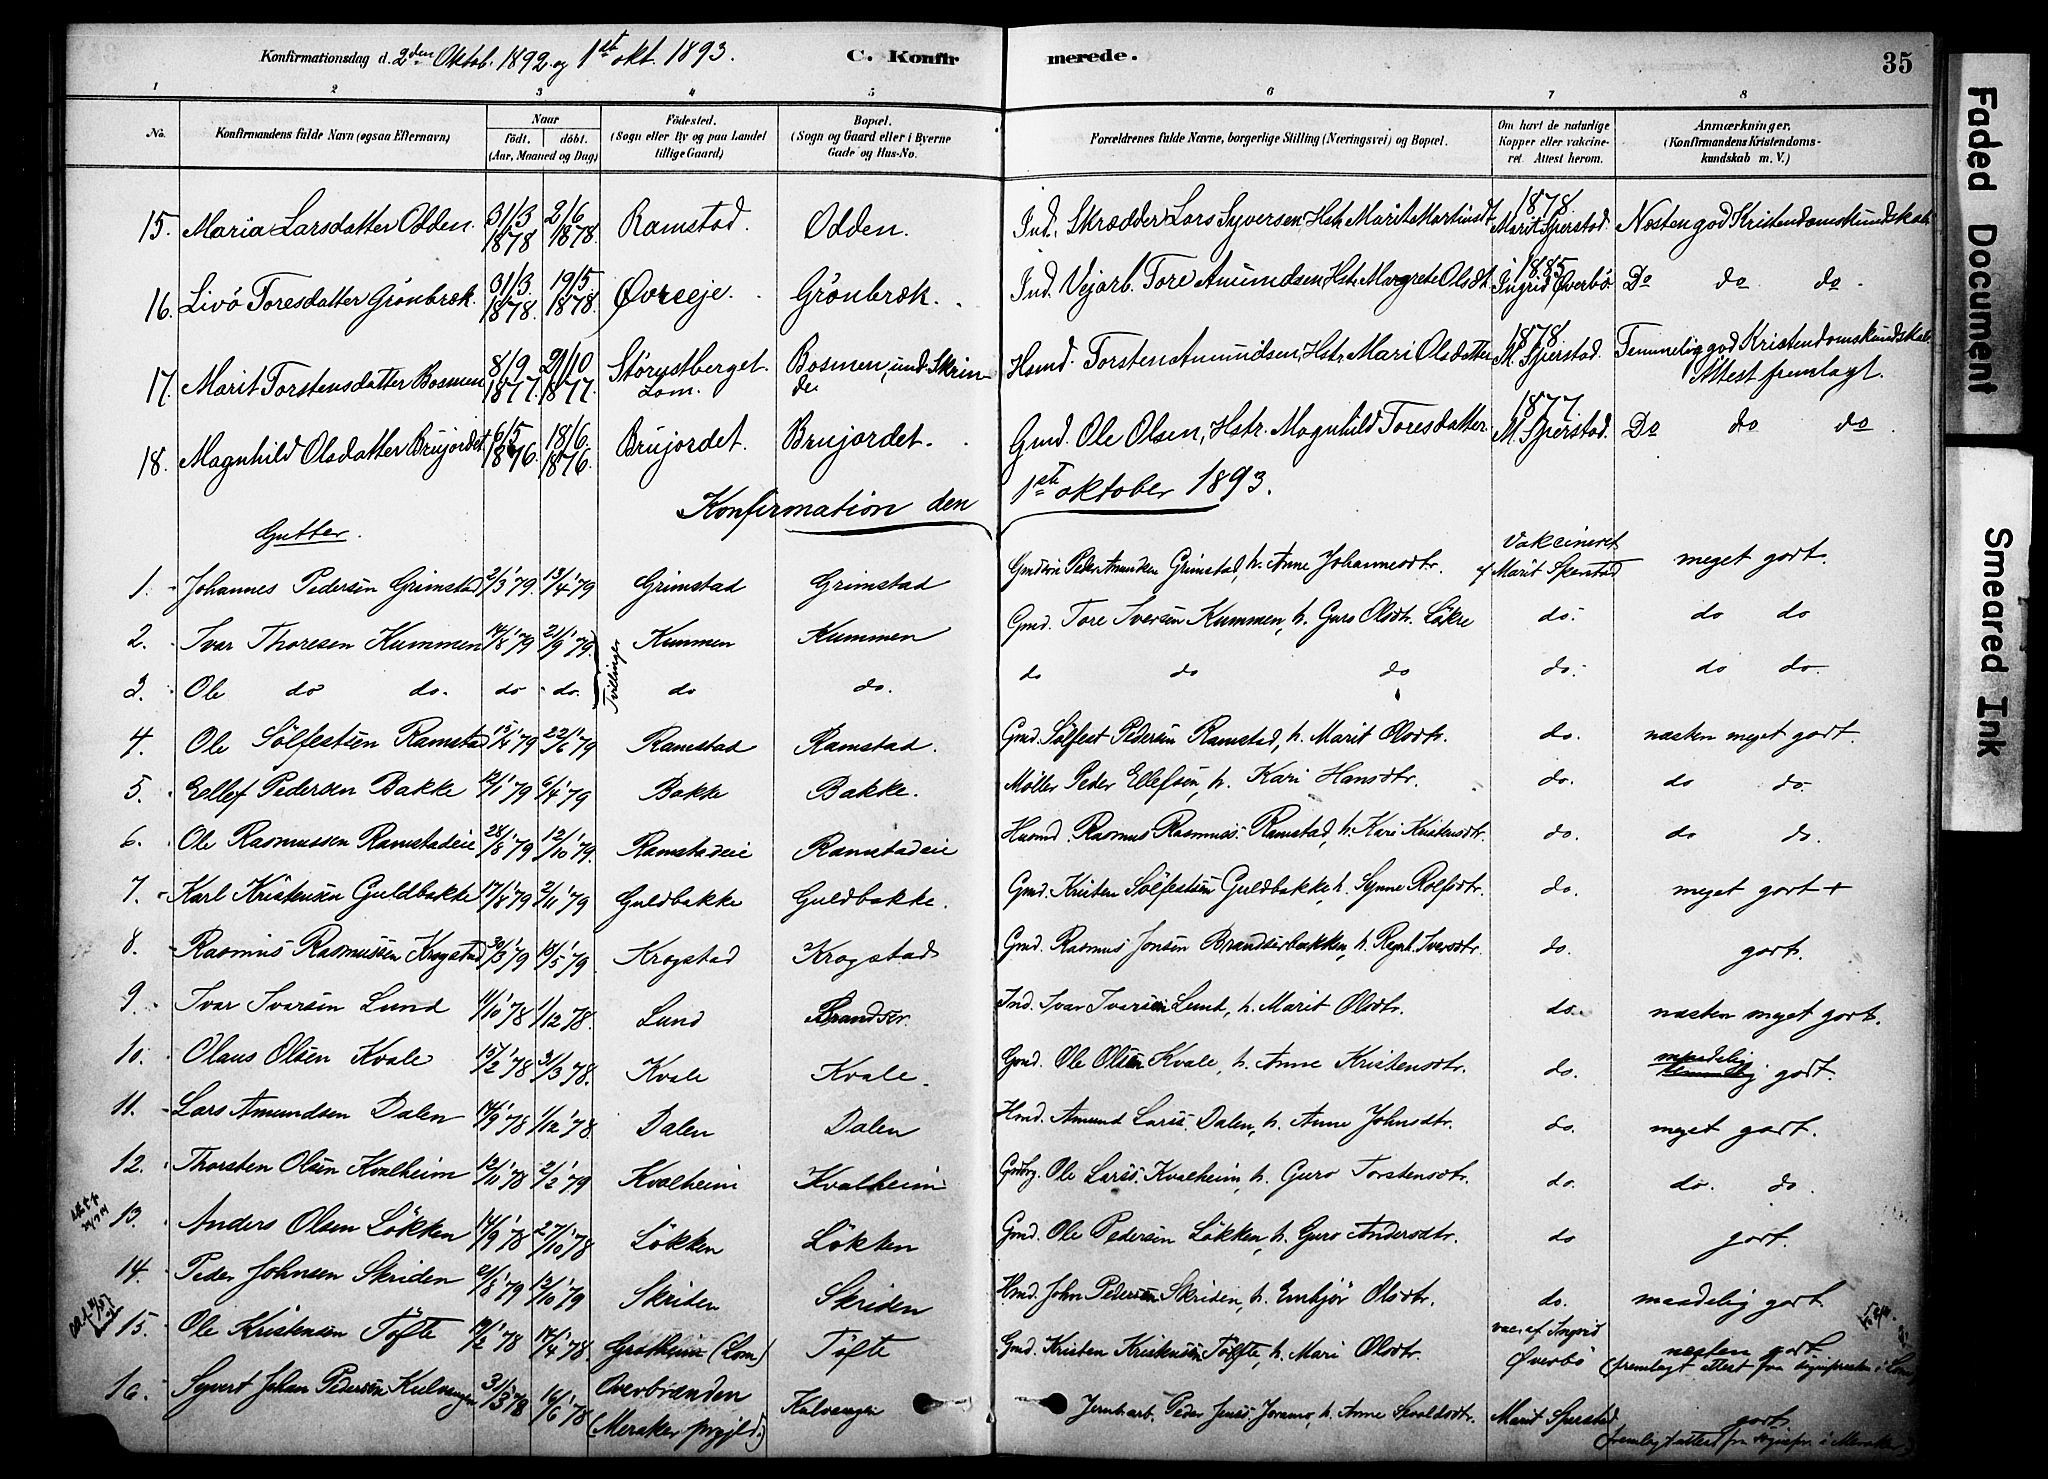 Konfirmationsdag d. 2den Oktob. 1892 og 1st okt. 1893. C. Konfirmerede. 35
1 2 3 4 5 6 7 8
No. Konfirmandens fulde Navn (ogsaa Efternavn) Naar Födt. döbt. (Aar, Maaned og Dag) Födested. (Sogn eller By og paa Landet tillige Gaard) Bopæl. (Sogn og Gaard eller i Byerne Gade og Hus-No. Forældrenes fulde Navne, borgerlige Stilling (Næringsvei) og Bopæl. Om havt de naturlige Kopper eller vakcineret. Attest herom. Anmærkninger, (Konfirmandens Kristendomskundskab m. V.)
15. Maria Larsdatter Odden. 31/3 1878 2/6 1878. Ramstad. Odden. Ind. Skrædder Lars Syversen, Hstr. Marit Martinsdt. 1878 Marit Sperstad. Næsten god Kristendomskundskab
16. Livö Toresdatter Grönbræk. 31/3 1878. 19/5 1878. Øvreeje. Grönbræk. Ind. Vejarb. Tore Amundsen, Hstr. Margrete Olsdt. 1885 Ingrid Øverbö Do do do.
17. Marit Torstensdatter Bosmen 8/9 1877. 21/10 1877. Störustberget. Lom. Bosmen, und. Skrinde Hsmd. Torsten Amundsen, Hstr. Mari Olsdatter 1878 M. Sperstad. Temmelig god Kristendomskundskab Attest fremlagt.
18. Magnhild Olsdatter Brujordet 6/5 1876 18/6 1876. Brujordet. Brujordet. Gmd. Ole Olsen, Hstr. Magnhild Toresdatter. 1877 M. Sperstad. Do do do.
Konfirmation den 1ste oktober 1893.
Gutter.
1. Johannes Pedersen Grimstad 2/3 '79. 13/4 '79 Grimstad Grimstad Peder Amundsen Grimstad, h. Anne Johannesdtr. Vakcineret af Marit Sperstad meget godt.
2. Ivar Thoresen Kummen 14/8 '79 21/9 '79. Tvillinger Kummen Kummen Gmd. Tore Iversen Kummen, h. Guro Olsdtr. Lökre do. do do
3. Ole do do. do do. do do. do do do do. do do.
4. Ole Sölfestsen Ramstad 15/4 '79 22/6 '79 Ramstad Ramstad. Gmd. Sölfest Pedersen Ramstad, h. Marit Olsdtr. do. næsten meget godt.
5. Ellef Pedersen Bakke 12/1 '79 6/4 '79 Bakke Bakke. Möller Peder Ellefsen, h. Kari Hansdtr. do. do do.
6. Ole Rasmussen Ramstadeie 28/8 '79 12/10 '79. Ramstadeie Ramstadeie Husmd. Rasmus Rasmuss. Ramstad, h. Kari Kristensdtr. do. do do.
7. Karl Kristensen Guldbakke 17/8 '79 2/11 '79 Guldbakke Guldbakke. Gmd. Kristen Sölfestsen Guldbakke, h. Synne Rolfsdtr. do. meget godt +
8. Rasmus Rasmussen Krogstad 30/3 '79 18/5 '79 Krogstad Krogstad Gmd. Rasmus Jonsen Brandserbakken, h. Ragnh. Iversdtr. do. godt.
9. Ivar Ivarsen Lund 11/10 '78 1/12 '78. Lund Brandser. Ind. Ivar Ivarsen Lund, h. Marit Olsdtr. do. næsten meget godt.
10. Olaus Olsen Kvale 15/2 '78 31/3 '78. Kvale Kvale. Gmd. Ole Olsen Kvale, h. Anne Kristensdtr. do. maadelig godt.
11. Lars Amundsen Dalen 14/9 '78 1/12 '78. Dalen Dalen Hmd. Amund Larss. Dalen, h. Anne Johnsdtr. do. meget godt.
12. Thorsten Olsen Kvalheim 12/10 '78 2/2 '79 Kvalheim Kvalheim Ole Larss. Kvalheim, h. Guro Torstensdtr. do. do. do.
13. Anders Olsen Lökken 14/9 '78 27/10 '78 Lökken Lökken Gmd. Ole Pedersen Lökken, h. Guro Andersdtr. do godt.
14. Peder Johnsen Skriden 21/8 '79 12/10 '79 Skriden Skriden Hmd. John Pedersen Skriden, h. Embjör Olsdtr. do. maadelig godt
15. Ole Kristensen Töfte 14/4 '78. (Lom) Töfte Gmd. Kristen Kristensen Töfte, h. Mari Olsdtr. vac. af Ingrid Øverbö næsten godt (fremlagt attest fra sognepresten i Lom)
16. Syvert Johan Pedersen Kulvangen 31/3 '78 16/6 '78 Overbrænden (Meraker prgjld.) Kulvangen Jernbarb. Peder Jenss. h. Anne Marit Sperstad godt (fremlagt attest fra sognepr. i Meraker)
Faded Document
Smeared Ink